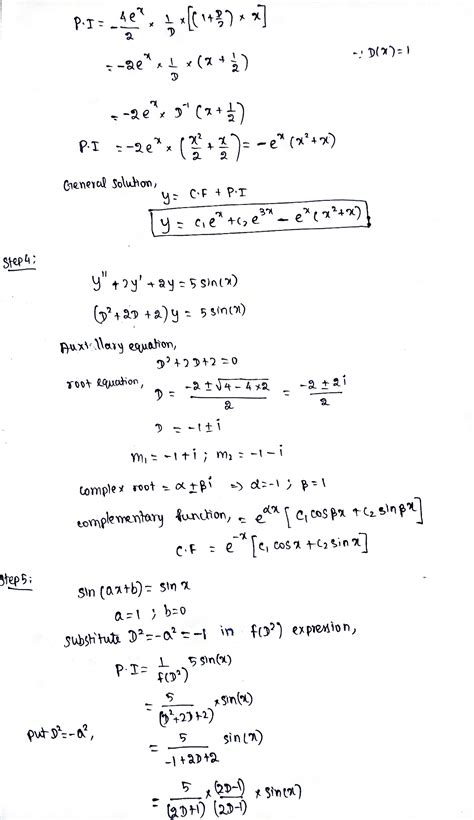 P.I = -4e^x/2 × 1/D × [(1+D/2) × x]
= -2e^x × 1/D × (x + 1/2) ∵ D(x) = 1
= -2e^x × D^-1 (x + 1/2)
P.I = -2e^x × (x^2/2 + x/2) = -e^x (x^2+x)
General solution,
y = C.F + P.I
y = c₁e^x + c₂e^3x - e^x (x^2+x)
Step4:
y'' + 2y' + 2y = 5 sin(x)
(D^2 + 2D + 2) y = 5 sin(x)
Auxillary equation,
D^2 + 2D + 2 = 0
root equation, D = (-2 ± √(4 - 4×2))/2 = (-2 ± 2i)/2
D = -1 ± i
m₁ = -1+i ; m₂ = -1-i
complex root = α ± βi ⇒ α = -1 ; β = 1
complementary function, = e^αx [c₁ cosβx + c₂ sinβx]
C.F = e^-x [c₁ cosx + c₂ sinx]
Step5:
sin(ax+b) = sin x
a = 1 ; b = 0
substitute D^2 = -a^2 = -1 in f(D^2) expression,
P.I = 1/f(D^2) 5 sin(x)
= 5/(D^2+2D+2) × sin(x)
put D^2 = -a^2, = 5/(-1+2D+2) sin(x)
= 5/(2D+1) × (2D-1)/(2D-1) × sin(x)